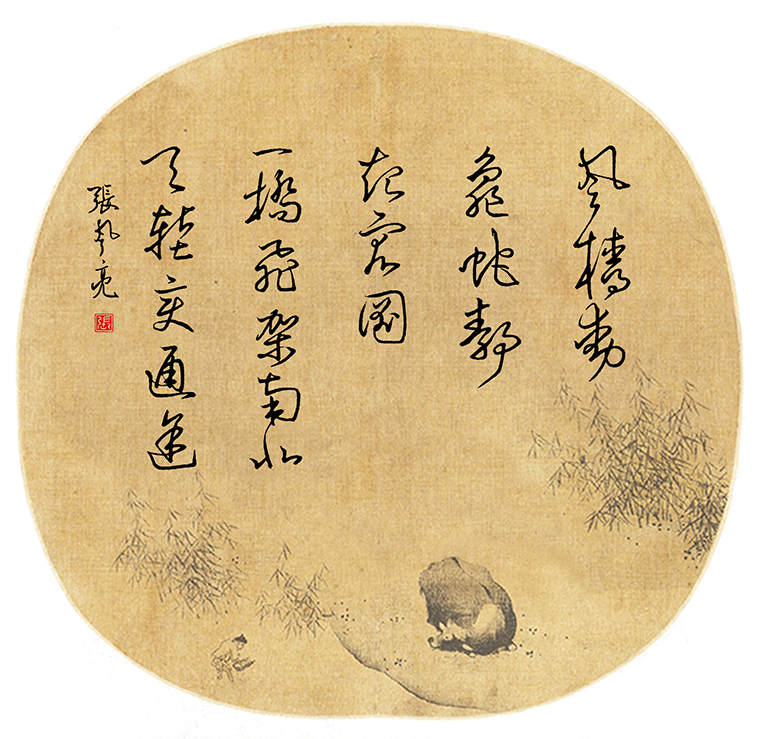 風檣動
龜蛇靜
起宏圖
一橋飛架南北
天塹變通途
張 亮
張